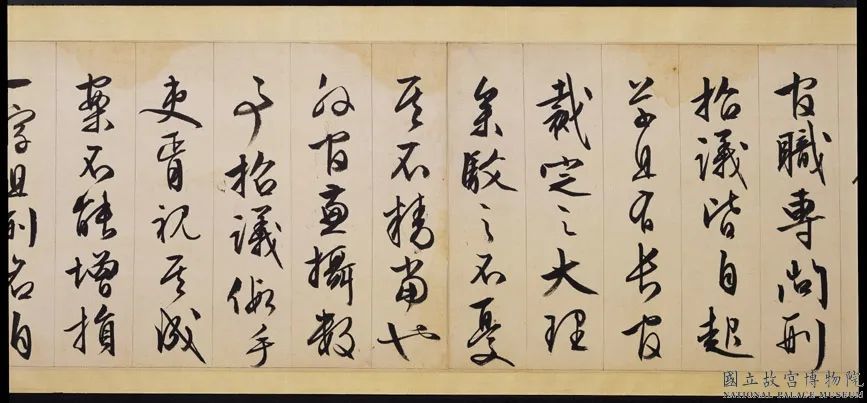 官職專尚刑
招議皆自起
草且有長官
裁定之大理
參駁之不憂
其不精當也
外官兼攝數
事招議假手
吏胥視其成
案不能增損
一字且刑名自
國立故宮博物院
NATIONAL PALACE MUSEUM